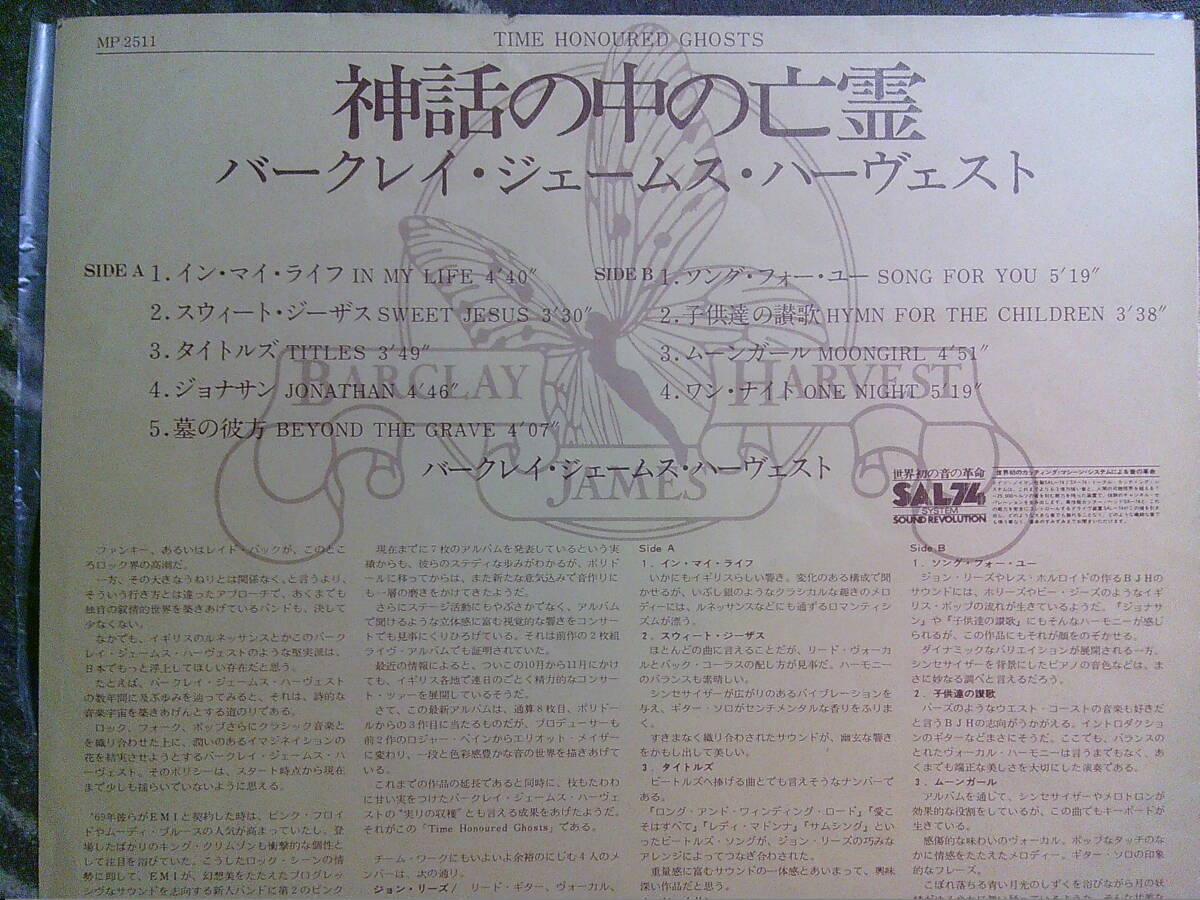 MP 2511
TIME HONOURED GHOSTS
神話の中の亡霊
バークレイ・ジェームス・ハーヴェスト
SIDE A 1. イン・マイ・ライフ IN MY LIFE 4′40″
2. スウィート・ジーザス SWEET JESUS 3′30″
3. タイトルズ TITLES 3′49″
4. ジョナサン JONATHAN 4′46″
5. 墓の彼方 BEYOND THE GRAVE 4′07″
SIDE B 1. ソング・フォー・ユー SONG FOR YOU 5′19″
2. 子供達の讃歌 HYMN FOR THE CHILDREN 3′38″
3. ムーンガール MOONGIRL 4′51″
4. ワン・ナイト ONE NIGHT 5′19″
BARCLAY
HARVEST
JAMES
バークレイ・ジェームス・ハーヴェスト
世界初の音の革命
SAL74
SYSTEM
SOUND REVOLUTION
世界初のカッティング・マシーン・システムによる音の革命
ファンキー、あるいはレイド・バックが、このとこ
ろロック界の高潮だ。
一方、その大きなうねりとは関係なく、と言うより、
そういう行き方とは違ったアプローチで、あくまでも
独自の叙情的世界を築きあげているバンドも、決して
少なくない。
なかでも、イギリスのルネッサンスとかこのバーク
レイ・ジェームス・ハーヴェストのような堅実派は、
日本でもっと浮上してほしい存在だと思う。
たとえば、バークレイ・ジェームス・ハーヴェスト
の数年間に及ぶ歩みを辿ってみると、それは、詩的な
音楽宇宙を築きあげんとする道のりである。
ロック、フォーク、ポップさらにクラシック音楽と
を織り合わせた上に、潤いのあるイマジネイションの
花を結実させようとするバークレイ・ジェームス・ハ
ーヴェスト。そのポリシーは、スタート時点から現在
まで少しも揺らいでいないように思える。
'69年彼らがEMIと契約した時は、ピンク・フロイ
ドやムーディ・ブルースの人気が高まっていたし、登
場したばかりのキング・クリムゾンも衝撃的な個性と
して注目を浴びていた。こうしたロック・シーンの情
勢に即して、EMIが、幻想美をたたえたプログレッ
シヴなサウンドを志向する新人バンドに第2のピンク
現在までに7枚のアルバムを発表しているという実
績からも、彼らのステディな歩みがわかるが、ポリド
ールに移ってからは、また新たな意気込みで音作りに
も一層の磨きをかけてきたようだ。
さらにステージ活動にもやぶさかでなく、アルバム
で聞けるような立体感に富む視覚的な響きをコンサー
トでも見事にくりひろげている。それは前作の2枚組
ライヴ・アルバムでも証明されていた。
最近の情報によると、ついこの10月から11月にかけ
ても、イギリス各地で連日のごとく精力的なコンサー
ト・ツァーを展開しているそうだ。
さて、この最新アルバムは、通算8枚目、ポリドー
ルからの3作目に当たるものだが、プロデューサーも
前2作のロジャー・ベインからエリオット・メイザー
に変わり、一段と色彩感豊かな音の世界を描きあげて
いる。
これまでの作品の延長であると同時に、枝もたわわ
にせい実をつけたバークレイ・ジェームス・ハーヴェ
ストの“実りの収穫”とも言える成果をあげたようだ。
それがこの「Time Honoured Ghosts」である。
チーム・ワークにもいよいよ余裕のにじむ4人のメ
ンバーは、次の通り。
ジョン・リーズ/ リード・ギター、ヴォーカル、
Side A
1. イン・マイ・ライフ
いかにもイギリスらしい響き。変化のある構成で聞
かせるが、いぶし銀のようなクラシカルな趣きのメロ
ディーには、ルネッサンスなどにも通ずるロマンティシ
ズムが漂う。
2. スウィート・ジーザス
ほとんどの曲に言えることだが、リード・ヴォーカ
ルとバック・コーラスの配し方が見事だ。ハーモニー
のバランスも素晴しい。
シンセサイザーが広がりのあるバイブレーションを
与え、ギター・ソロがセンチメンタルな香りをふりま
く。
すきまなく織り合わされたサウンドが、幽玄な響き
をかもし出して美しい。
3. タイトルズ
ビートルズへ捧げる曲とでも言えそうなナンバーで
ある。
「ロング・アンド・ワィンディング・ロード」「愛こ
そはすべて」「レディ・マドンナ」「サムシング」とい
ったビートルズ・ソングが、ジョン・リーズの巧みな
アレンジによってつなぎ合わされた。
重量感に富むサウンドの一体感とあいまって、興味
深い作品だと思う。
Side B
1. ソング・フォー・ユー
ジョン・リーズやレス・ホルロイドの作るBJHの
サウンドには、ホリーズやビー・ジーズのようなイギ
リス・ポップの流れが生きているようだ。「ジョナサ
ン」や「子供達の讃歌」にもそんなハーモニーが感じ
られるが、この作品にもそれが顔をのぞかせる。
ダイナミックなバリエイションが展開される一方、
シンセサイザーを背景にしたピアノの音色などは、ま
さに妙なる調べと言えるだろう。
2. 子供達の讃歌
バーズのようなウエスト・コーストの音楽も好きだ
と言うBJHの志向がうかがえる。イントロダクション
のギターなどまさにそうだ。ここでも、バランスの
とれたヴォーカル・ハーモニーは言うまでもなく、あ
くまでも端正な美しさを大切にした演奏である。
3. ムーンガール
アルバムを通じて、シンセサイザーやメロトロンが
効果的な役割をしているが、この曲でもキーボードが
生きている。
感傷的な味わいのヴォーカル。ポップなタッチのな
かに情感をたたえたメロディー。ギター・ソロの印象
的なフレーズ。
こぼれ落ちる青い月光のしずくを浴びながら月の妖